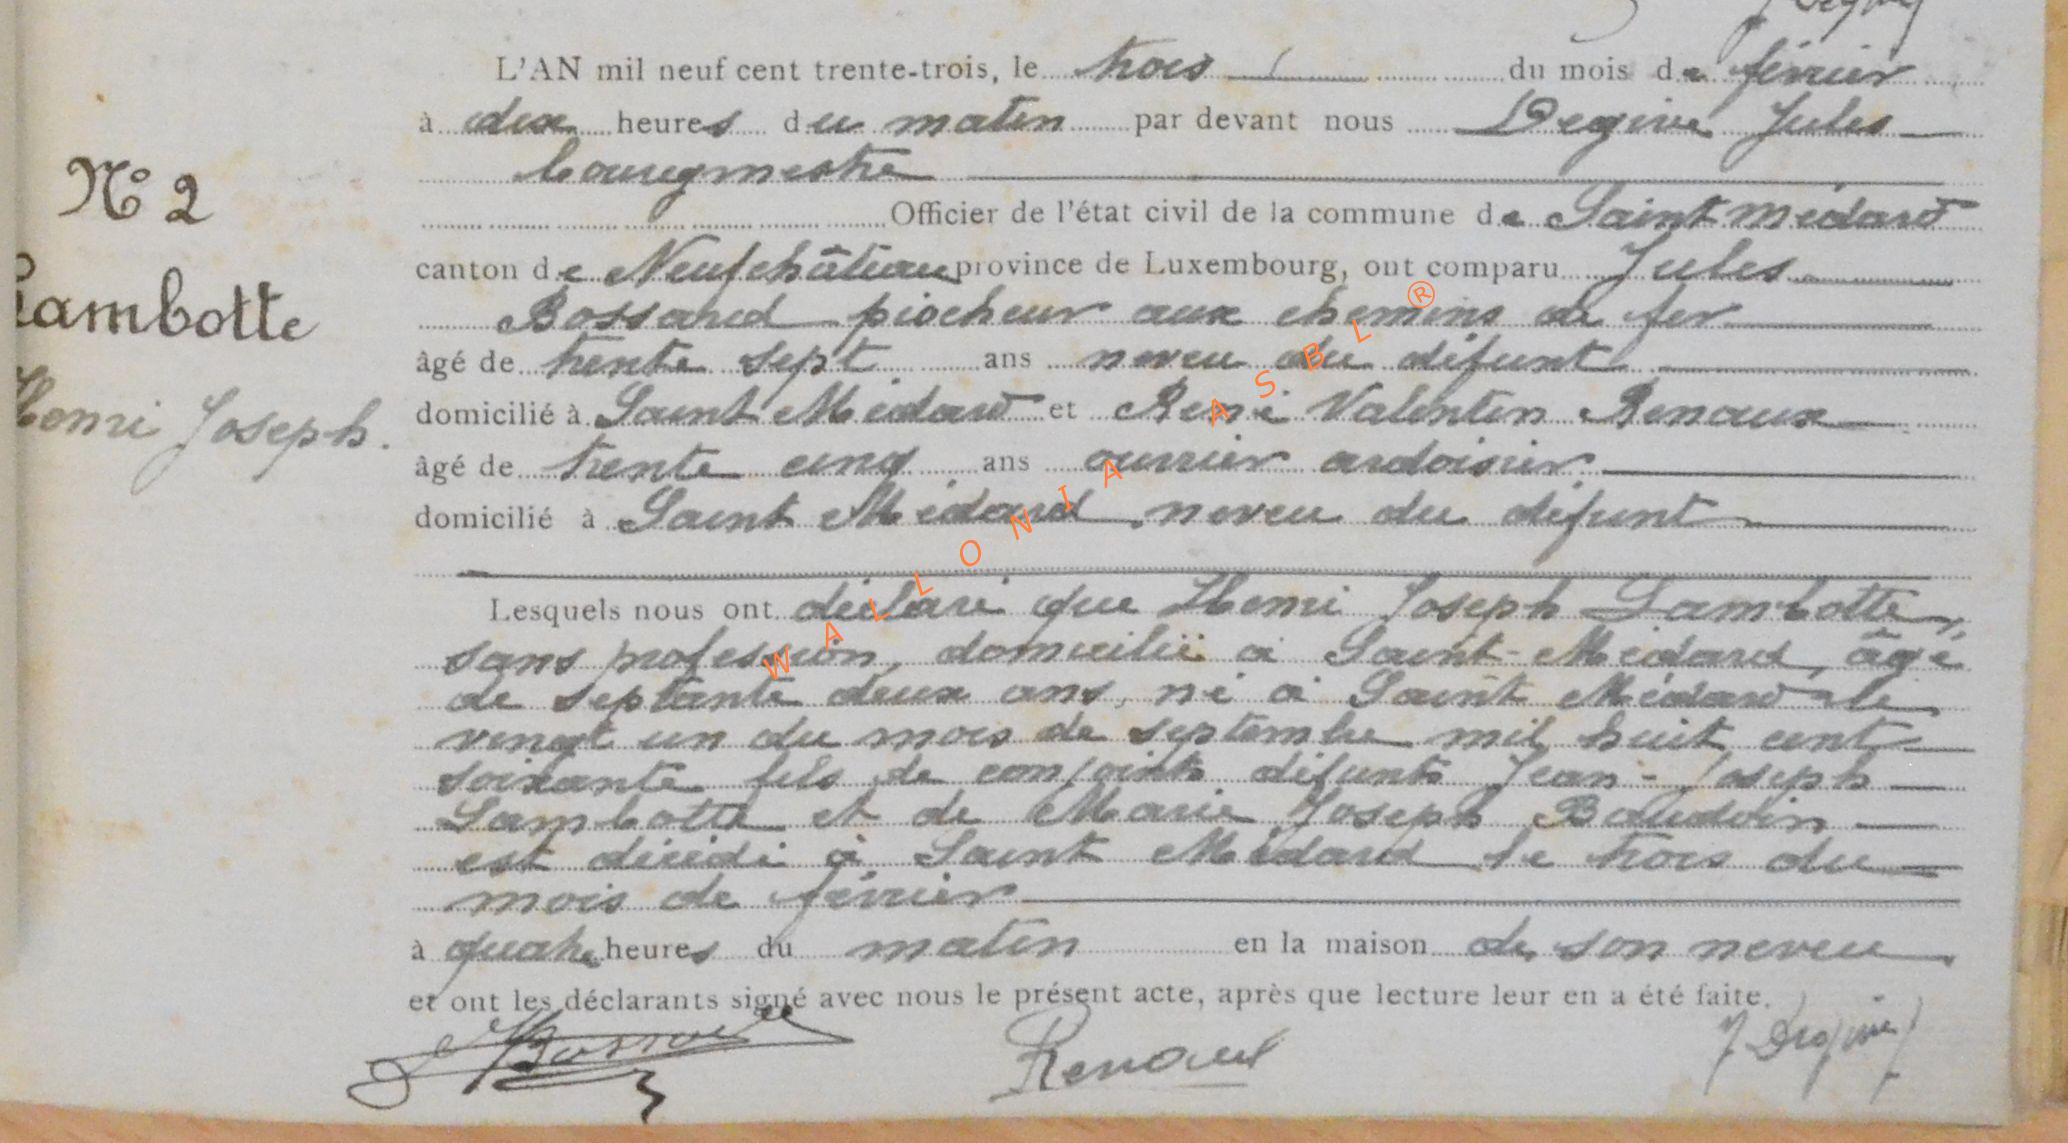 L'AN mil neuf cent trente-trois, le trois du mois de février
à dix heures du matin par devant nous Degive Jules
bourgmestre
Officier de l'état civil de la commune de Saint Médard
canton de Neufchâteau province de Luxembourg, ont comparu Jules
Bossard piocheur aux chemins de fer
âgé de trente sept ans neveu du défunt
domicilié à Saint Médard et René Valentin Renaux
âgé de trente cinq ans ouvrier ardoisier
domicilié à Saint Médard neveu du défunt
N° 2
Lambotte
Henri Joseph.
Lesquels nous ont déclaré que Henri Joseph Lambotte,
sans profession, domicilié à Saint-Médard, âgé
de septante deux ans, né à Saint Médard le
vingt un du mois de septembre mil huit cent
soixante fils de conjoints défunts Jean-Joseph
Lambotte et de Marie Joseph Baudoin
est décédé à Saint Médard le trois du
mois de février
à quatre heures du matin en la maison de son neveu
et ont les déclarants signé avec nous le présent acte, après que lecture leur en a été faite.
JBossard Renaux J Degive
WALLONIA ASBL ®